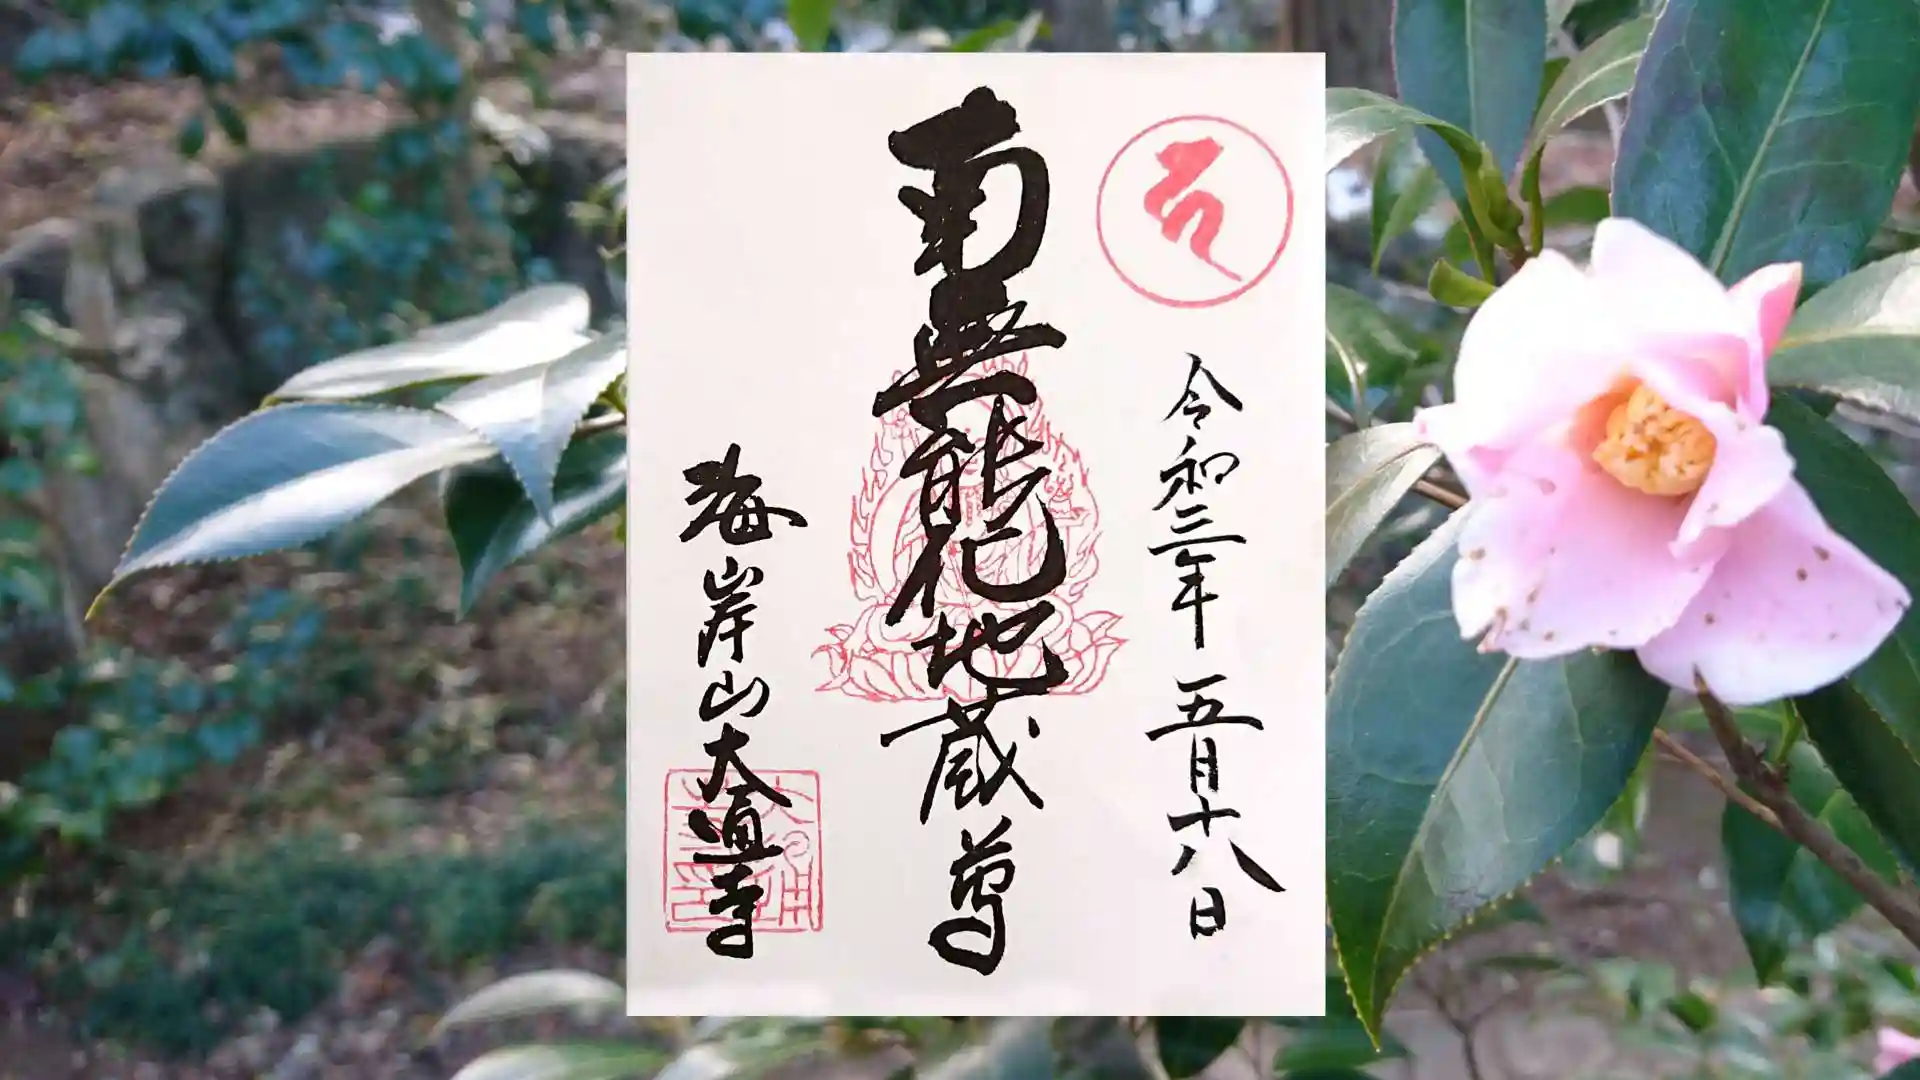 令和三年 五月十八日
南無能化地蔵尊
海岸山大直寺